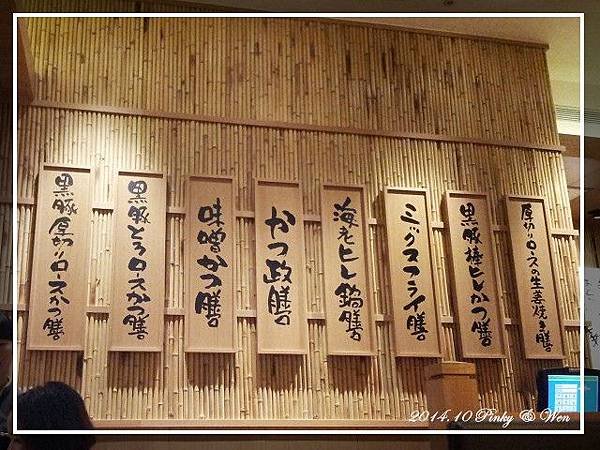 黒豚厚切りロースかつ膳
黒豚とろロースかつ膳
味噌かつ膳
かつ政膳
海老ヒレ鍋膳
ミックスフライ膳
黒豚棒ヒレかつ膳
厚切りロースの生姜焼き膳
2014.10 Pinky & Wen